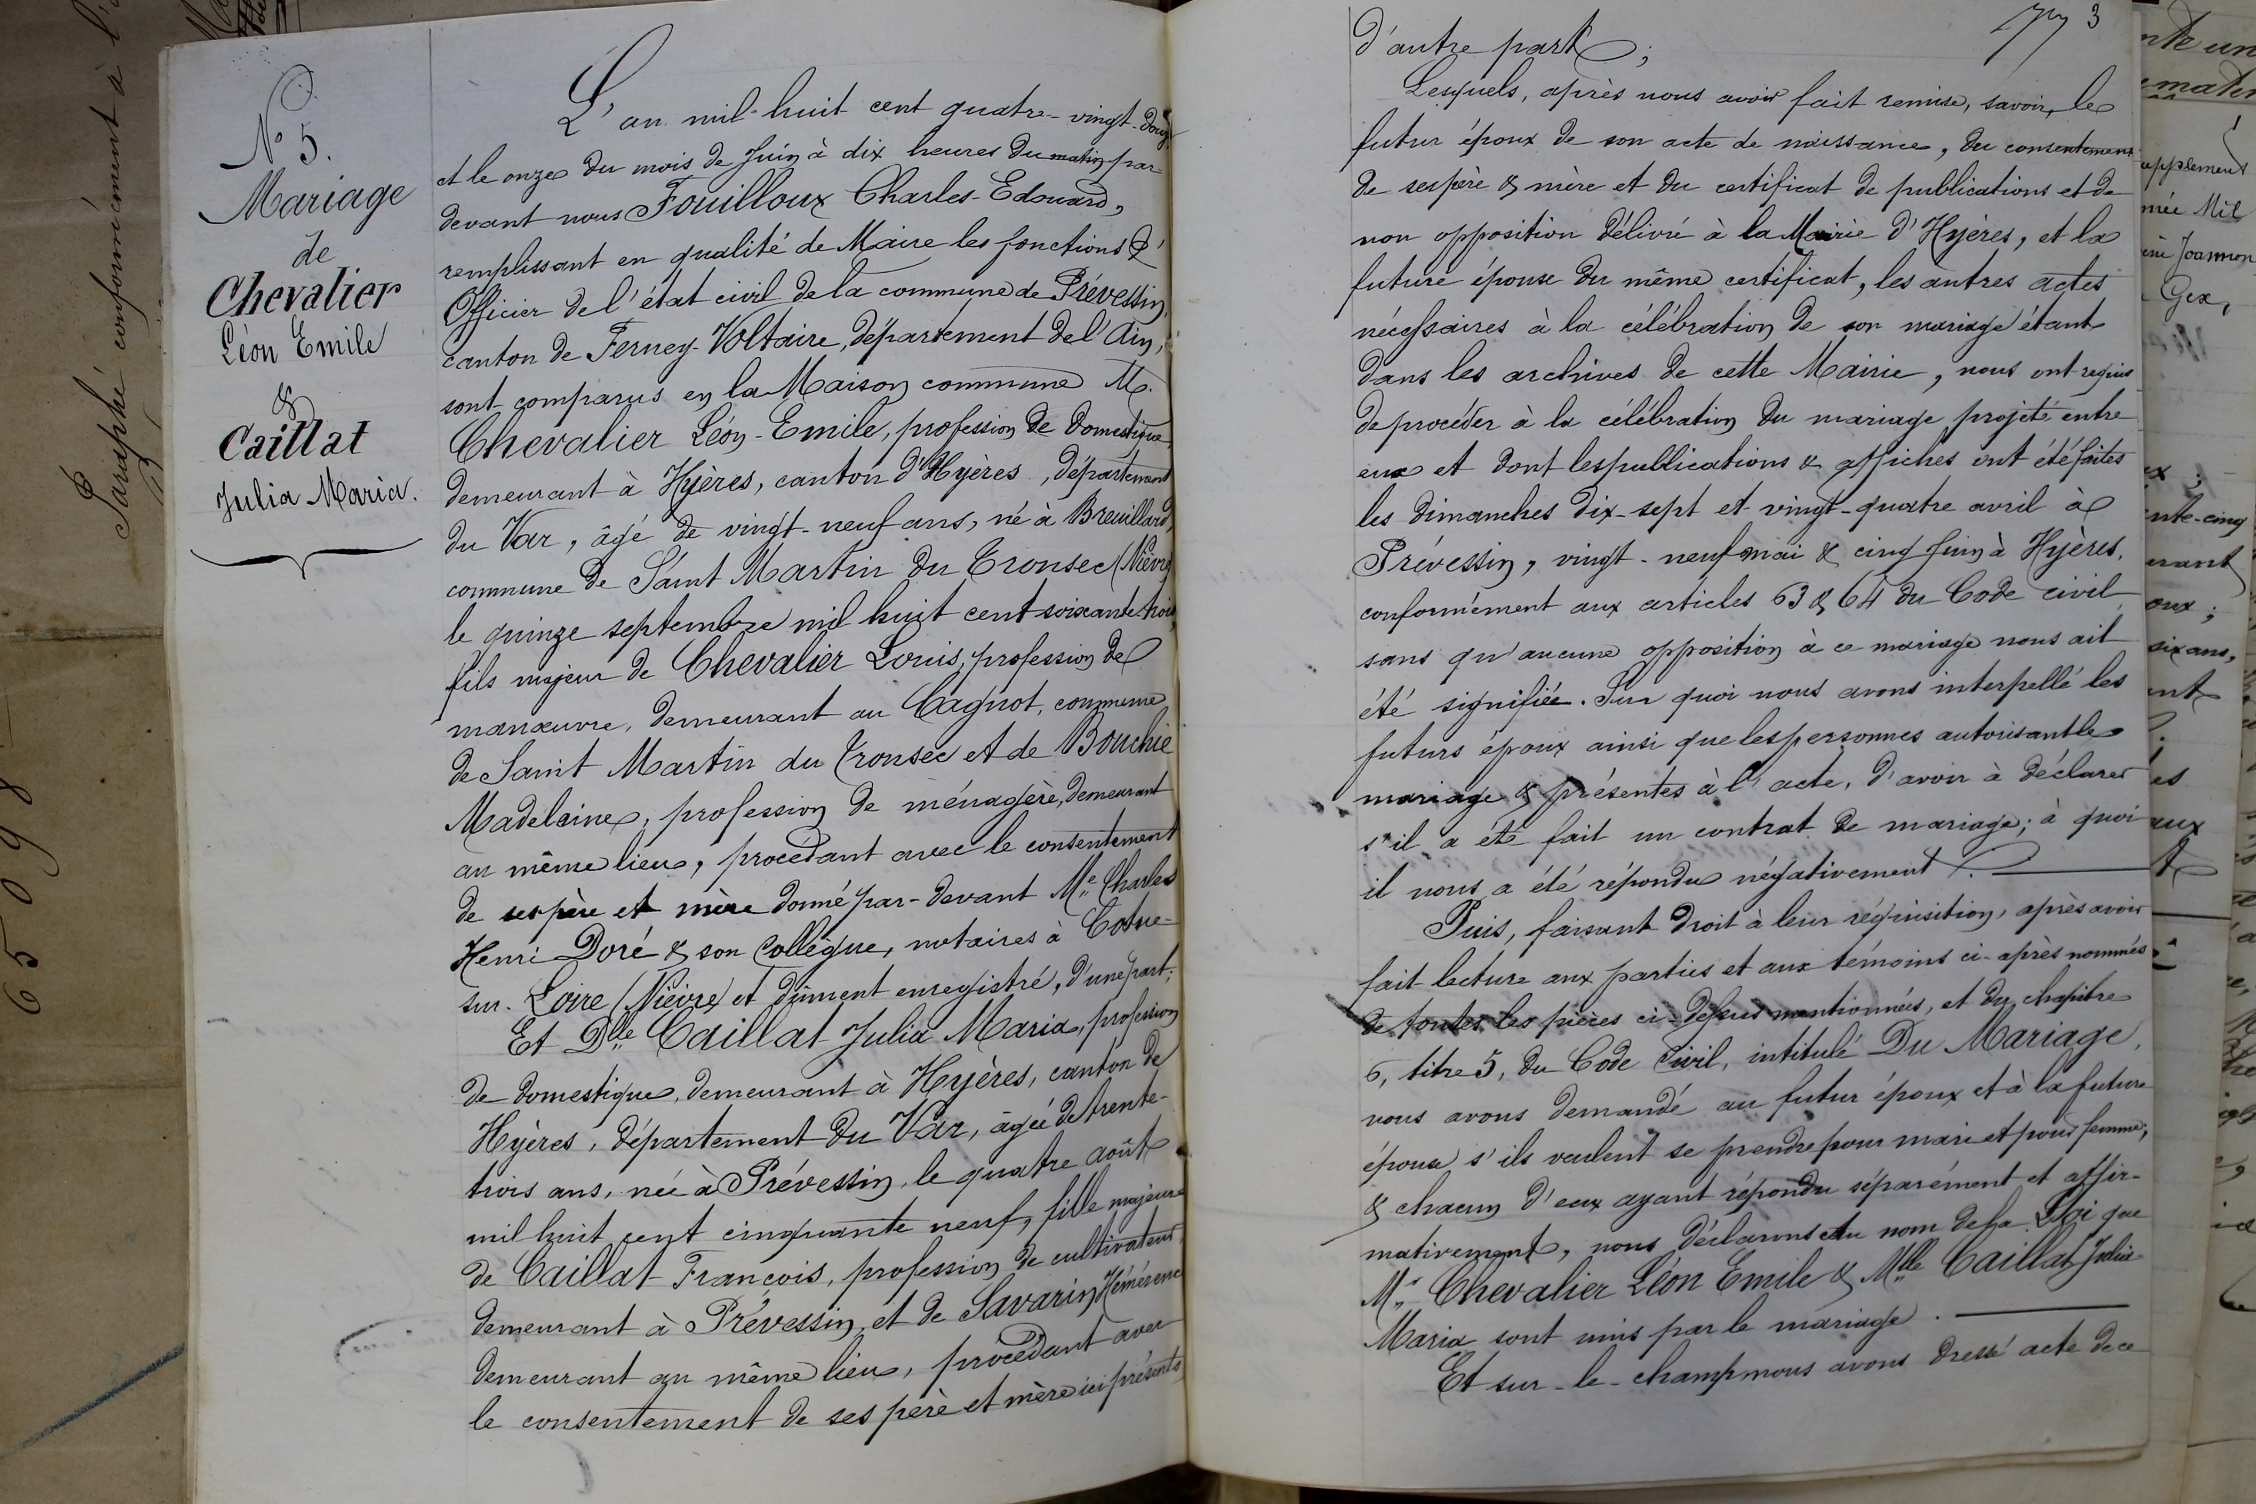 Paraphé conformément à l'
65098
N° 5.
Mariage
de
Chevalier
Léon Emile
&
Caillat
Julia Maria.
L'an mil-huit cent quatre-vingt-douze
et le onze du mois de Juin à dix heures du matin, par-
devant nous Fouilloux Charles-Edouard,
remplissant en qualité de Maire les fonctions d'
Officier de l'état civil de la commune de Prévessin,
canton de Ferney-Voltaire, département de l'Ain,
sont comparus en la Maison commune M.
Chevalier Léon-Emile, profession de domestique
demeurant à Hyères, canton d'Hyères, département
du Var, âgé de vingt-neuf ans, né à Breuillard,
commune de Saint Martin du Tronsec (Nièvre)
le quinze septembre mil huit cent soixante trois,
fils majeur de Chevalier Louis, profession de
manœuvre, demeurant au Cagnot, commune
de Saint Martin du Tronsec et de Bouchie
Madelaine, profession de ménagère, demeurant
au même lieu, procédant avec le consentement
de ses père et mère donné par-devant Me Charles
Henri Doré & son Collègue, notaires à Cosne-
sur-Loire (Nièvre) et dûment enregistré, d'une part;
Et Dlle Caillat Julia Maria, profession
de domestique, demeurant à Hyères, canton de
Hyères, département du Var, âgée de trente-
trois ans, née à Prévessin, le quatre août
mil huit cent cinquante neuf, fille majeure
de Caillat François, profession de cultivateur
demeurant à Prévessin, et de Savarin Hémérence
demeurant au même lieu, procédant avec
le consentement de ses père et mère ici présents
3
d'autre part;
Lesquels, après nous avoir fait remise, savoir, le
futur époux de son acte de naissance, du consentement
de ses père & mère et du certificat de publications et de
non opposition délivré à la Mairie d'Hyères, et la
future épouse du même certificat, les autres actes
nécessaires à la célébration de son mariage étant
dans les archives de cette Mairie, nous ont requis
de procéder à la célébration du mariage projeté entre
eux et dont les publications & affiches ont été faites
les dimanches dix-sept et vingt-quatre avril à
Prévessin, vingt-neuf mai & cinq juin à Hyères,
conformément aux articles 63 & 64 du Code civil
sans qu'aucune opposition à ce mariage nous ait
été signifiée. Sur quoi nous avons interpellé les
futurs époux ainsi que les personnes autorisant le
mariage & présentes à l'acte, d'avoir à déclarer
s'il a été fait un contrat de mariage; à quoi
il nous a été répondu négativement.
Puis, faisant droit à leur réquisition, après avoir
fait lecture aux parties et aux témoins ci-après nommés
de toutes les pièces ci-dessus mentionnées, et du chapitre
6, titre 5, du Code Civil, intitulé Du Mariage,
nous avons demandé au futur époux et à la future
épouse, s'ils veulent se prendre pour mari et pour femme,
& chacun d'eux ayant répondu séparément et affir-
mativement, nous déclarons au nom de la Loi que
Mr Chevalier Léon Emile & Mlle Caillat Julia
Maria sont unis par le mariage.
Et sur-le-champ nous avons dressé acte de ce
mée Mil
Joannon
Gex,